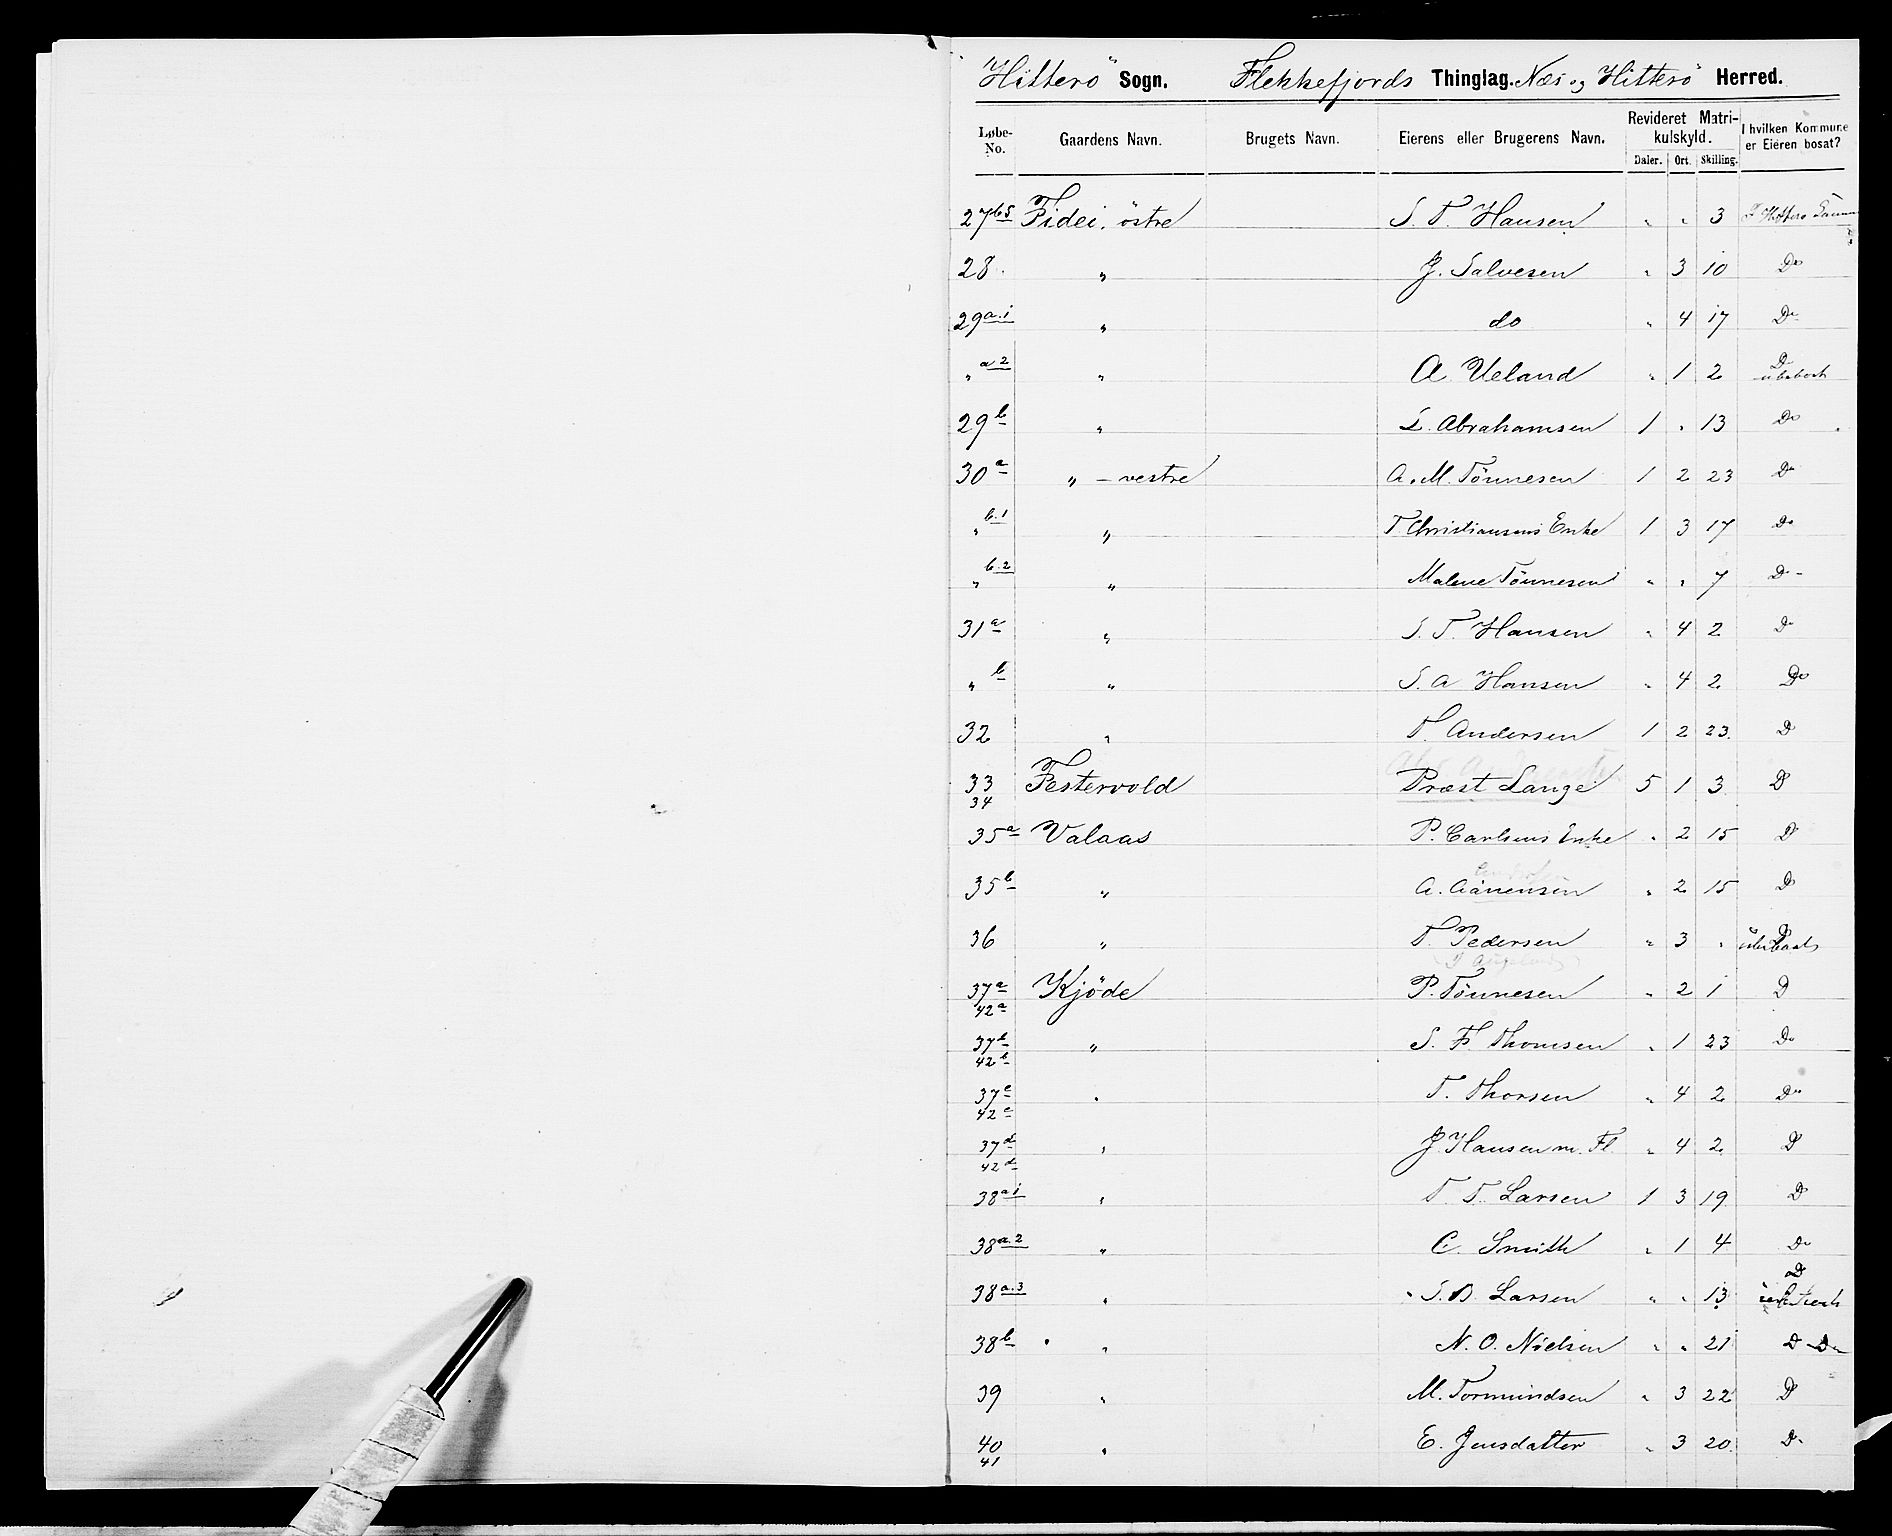 "Hitterö" Sogn. Flekkefjords Thinglag. Næs og Hitterö Herred.
Løbe-No. Gaardens Navn. Brugets Navn. Eierens eller Brugerens Navn. Revideret Matrikulskyld. Daler. Ort. Skilling. I hvilken Kommune er Eieren bosat?
27 b5 Fidei, östre S. T. Hansen " " 3 Hitterö
28. " J. Salvesen " 3 10 Do
29 a.1 " do " 4 17 Do
" a2 " A. Ueland " 1 2 D
29 b " L. Abrahamsen 1 " 13 Do
30 a " – vestre A. M. Tönnesen 1 2 23 Do
" b.1 " T. Christiansens Enke 1 3 17 Do
" b.2 " Malene Tönnesen " " 7 D -
31 a " S. T. Hansen " 4 2 Do
" b " S. A Hansen " 4 2 Do
32 " T. Andersen 1 2 23. D
33 34 Festervold Præst Lange 5 1 3 D
35 a Valaas P. Carlsens Enke " 2 15 D
35 b " A. Aanensen " 2 15 D
36 " T. Pedersen " 3 " D
37 a 42 a Kjöde P. Tönnesen " 2 1 D
37 b 42 b " S. F. Thomsen " 1 23 Do
37 c 42 c " T. Thorsen " 4 2 Do
37 d 42 d " J. Hansen m. Fl. " 4 2 D
38 a1 " T. T. Larsen 1 3 19 D
38 a.2 " C. Smith " 1 4 Do
38 a.3 " S. B. Larsen " " 13 D
38 b " N. O. Nielsen " " 21 D
39 " M. Tormundsen " 3 22 D
40 41 " E. Jensdatter " 3 20 D